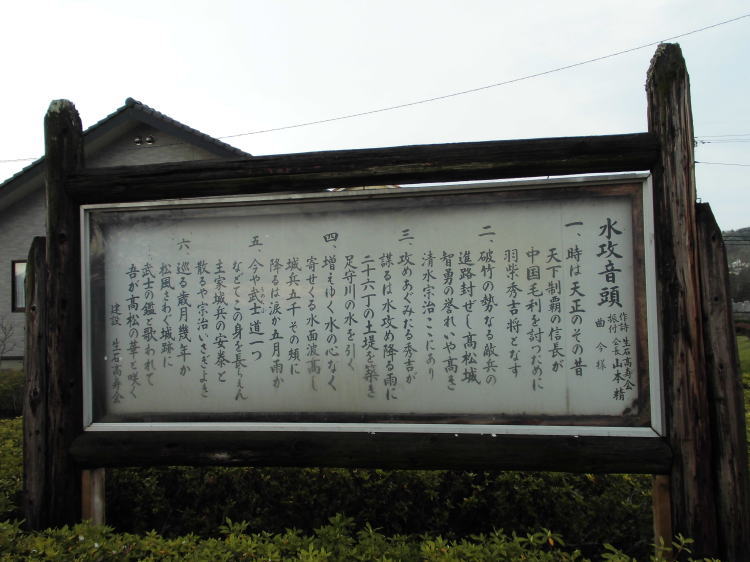 水攻音頭
作詩 生石高寿会
振付 会長 山本 精
曲 今様
一、時は天正のその昔
天下制覇の信長が
中国毛利を討つために
羽柴秀吉将となす
二、破竹の勢なる敵兵の
進路封せし高松城
智勇の誉れいや高き
清水宗治ここにあり
三、攻めあぐみたる秀吉が
謀るは水攻め降る雨に
二十六丁の土堤を築き
足守川の水を引く
四、増えゆく水の心なく
寄せくる水面波高し
城兵五千その頬に
降るは涙か五月雨か
五、今や武士道一つ
などてこの身を長らえん
主家城兵の安泰と
散るや宗治いさぎよき
六、巡る歳月幾年か
松風さわぐ城跡に
武士の鑑と歌われて
吾が高松の華と咲く
建設 生石高寿会